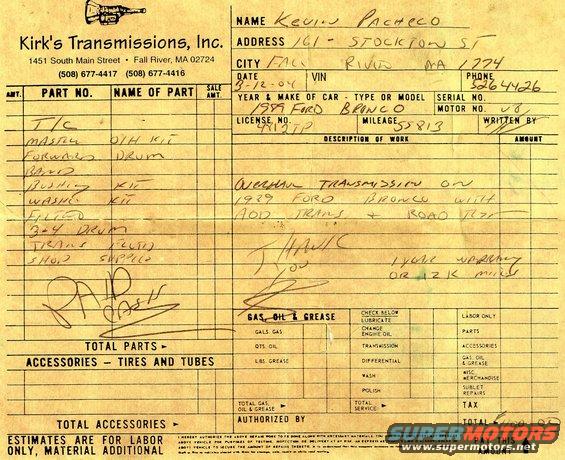 Kirk's Transmissions, Inc.
1451 South Main Street • Fall River, MA 02724
(508) 677-4417 (508) 677-4416
NAME Kevin Pacheco
ADDRESS 161 - STOCKTON ST
CITY FALL RIVER MA 1774
DATE 3-12-04 VIN PHONE 5264426
YEAR & MAKE OF CAR - TYPE OR MODEL SERIAL NO.
1989 FORD BRONCO MOTOR NO. V8
LICENSE NO. MILEAGE 55813 WRITTEN BY
AMT. PART NO. NAME OF PART SALE AMT.
DESCRIPTION OF WORK AMOUNT
T/C
MASTER O/H KIT
FORWARD DRUM
BAND
BUSHING KIT
WASHER KIT
FILTER
3-4 DRUM
TRANS FLUID
SHOP SUPPLIES
OVERHAUL TRANSMISSION ON
1989 FORD BRONCO WITH
AOD TRANS + ROAD TEST
THANK
YOU
1 YEAR WARRANTY
OR 12K MILES
PAID
CASH
TOTAL PARTS
ACCESSORIES - TIRES AND TUBES
TOTAL ACCESSORIES
ESTIMATES ARE FOR LABOR
ONLY, MATERIAL ADDITIONAL
GAS, OIL & GREASE
GALS. GAS
QTS. OIL
LBS. GREASE
TOTAL GAS, OIL & GREASE
CHECK BELOW
LUBRICATE
CHANGE ENGINE OIL
TRANSMISSION
DIFFERENTIAL
WASH
POLISH
TOTAL SERVICE
LABOR ONLY
PARTS
ACCESSORIES
GAS, OIL & GREASE
MISC. MERCHANDISE
SUBLET REPAIRS
TAX
TOTAL
AUTHORIZED BY
SUPERMOTORS